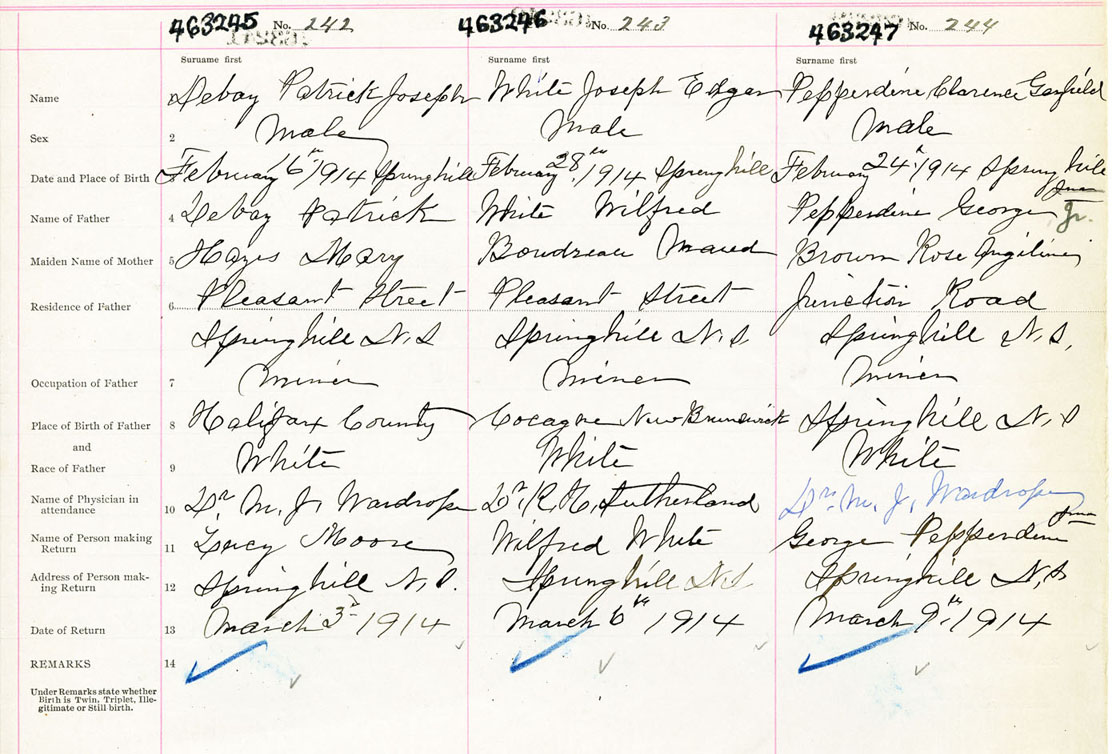 463245 No. 242 463246 No. 243 463247 No. 244
Surname first Surname first Surname first
Name 1 Debay Patrick Joseph White Joseph Edgar Pepperdine Clarence Garfield
Sex 2 Male Male Male
Date and Place of Birth 3 February 6th 1914 Springhill February 28th 1914 Springhill February 24th 1914 Springhill
Name of Father 4 Debay Patrick White Wilfred Pepperdine George Jr.
Maiden Name of Mother 5 Hayes Mary Boudreau Maud Brown Rose
Residence of Father 6 Pleasant Street Pleasant Street Junction Road
Springhill N.S Springhill N.S. Springhill N.S.
Occupation of Father 7 Miner Miner Miner
Place of Birth of Father 8 Halifax County Cocagne New Brunswick Springhill N.S
and
Race of Father 9 White White White
Name of Physician in attendance 10 Dr. M. J. Wardrope Dr. R. H. Sutherland Dr. M. J. Wardrope
Name of Person making Return 11 Lucy Moore Wilfred White George Pepperdine
Address of Person making Return 12 Springhill N.S. Springhill N.S Springhill N.S
Date of Return 13 March 3rd 1914 March 6th 1914 March 9th 1914
REMARKS 14
Under Remarks state whether
Birth is Twin, Triplet, Ille-
gitimate or Still birth.